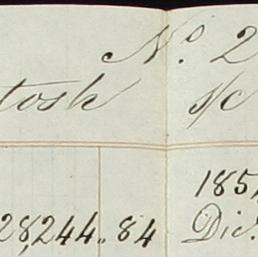 No. 2
tosh s/c
185
28,244.. 84 Dic.